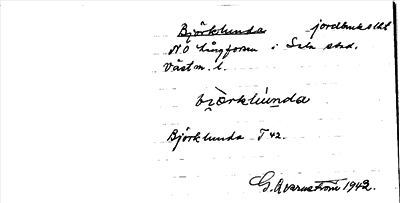 Björklunda jordbruksläht
N.O hångforsen i Sala stad.
Västm. l.
bjö̀rkluńda
Björklunda T 42.
G. Qvarnström 1942.